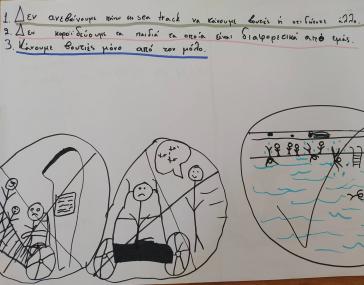 1. Δεν ανεβαίνουμε πάνω στο sea track να κάνουμε βουτιές ή οτιδήποτε άλλο.
2. Δεν κοροϊδεύουμε τα παιδιά τα οποία είναι διαφορετικά από εμάς.
3. Κάνουμε βουτιές μόνο από τον μόλο.